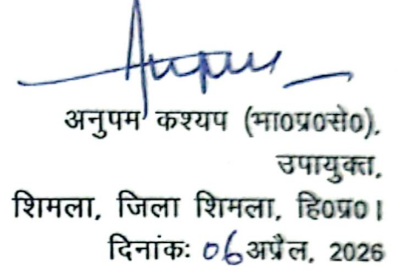 अनुपम कश्यप (भा०प्र०से०),
उपायुक्त,
शिमला, जिला शिमला, हि०प्र०।
दिनांकः 06 अप्रैल, 2026